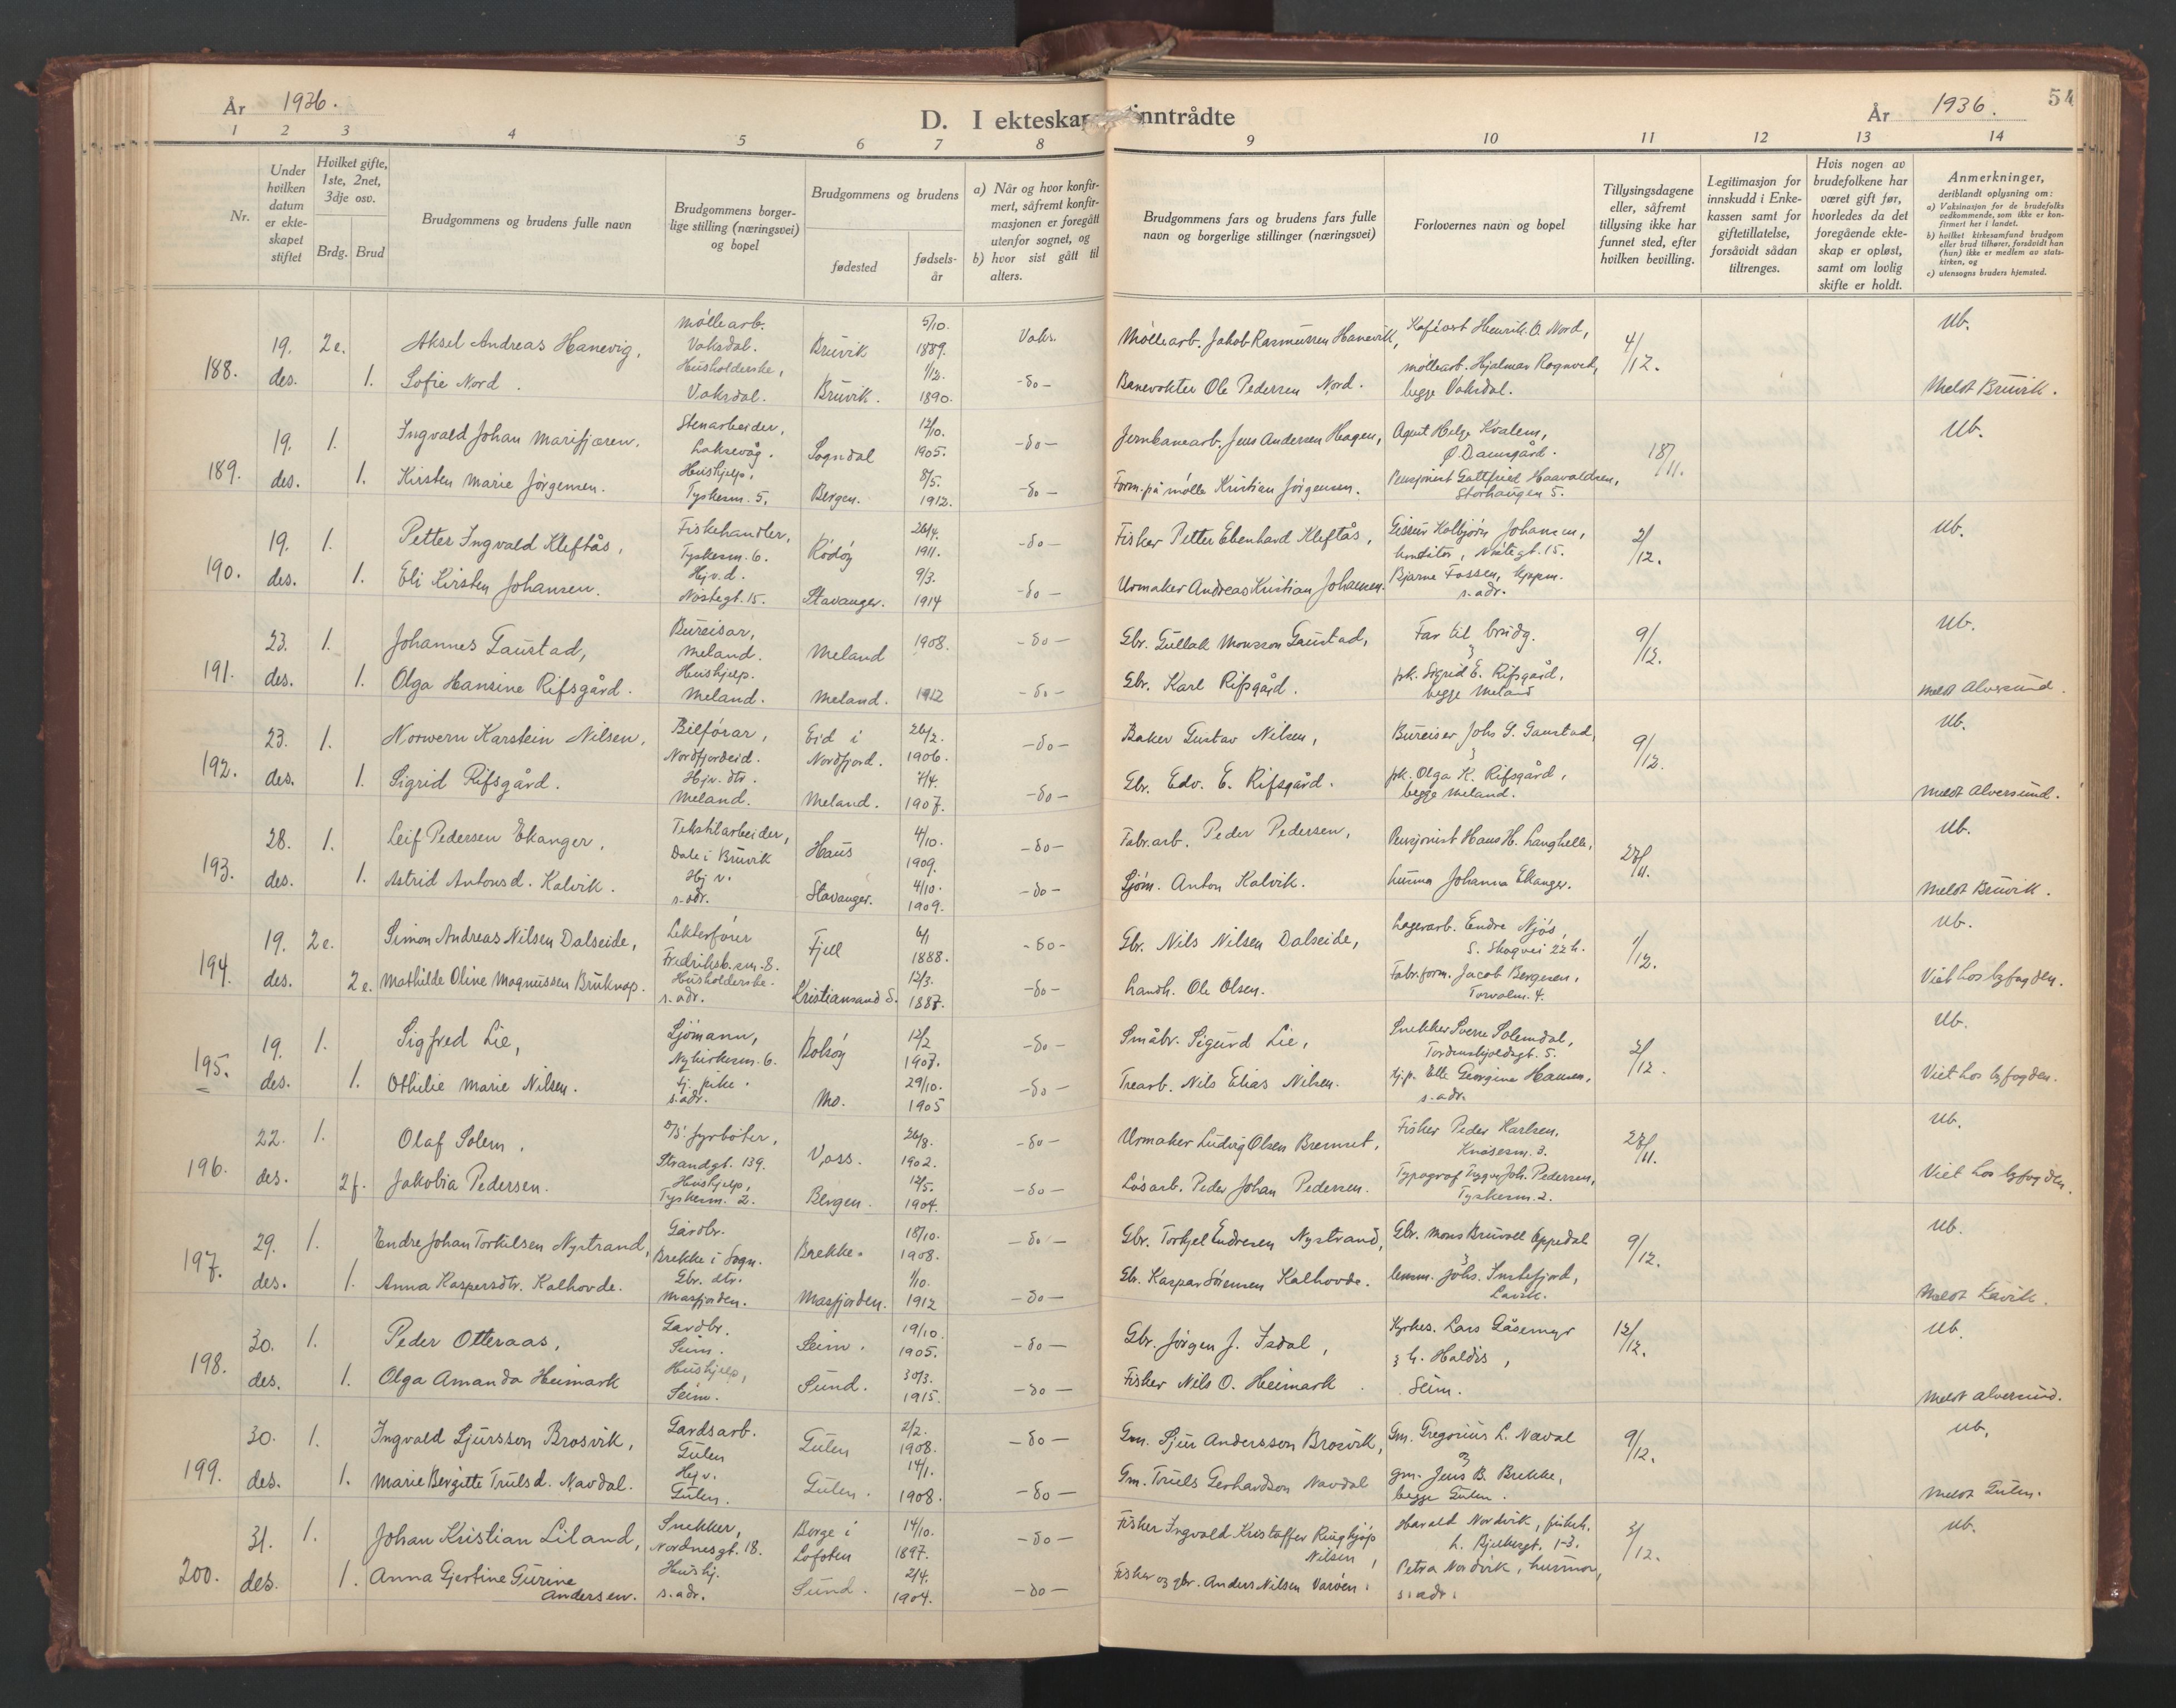 År 1936.
D. I ekteskap inntrådte
År 1936.
54
1 2 3 4 5 6 7 8 9 10 11 12 13 14
Nr.
Under hvilken datum er ekte-skapet stiftet
Hvilket gifte, 1ste, 2net, 3dje osv.
Brdg. Brud
Brudgommens og brudens fulle navn
Brudgommens borger-lige stilling (næringsvei) og bopel
Brudgommens og brudens
fødested
fødsels-år
a) Når og hvor konfir-mert, såfremt konfir-masjonen er foregått utenfor sognet, og
b) hvor sist gått til alters.
Brudgommens fars og brudens fars fulle navn og borgerlige stillinger (næringsvei)
Forlovernes navn og bopel
Tillysingsdagene eller, såfremt tillysing ikke har funnet sted, efter hvilken bevilling.
Legitimasjon for innskudd i Enke-kassen samt for giftetillatelse, forsåvidt sådan tiltrenges.
Hvis nogen av brudefolkene har været gift før, hvorledes da det foregående ekte-skap er opløst, samt om lovlig skifte er holdt.
Anmerkninger,
deriblandt oplysning om:
a) Vaksinasjon for de brudefolks vedkommende, som ikke er kon-firmert her i landet.
b) hvilket kirkesamfund brudgom eller brud tilhører, forsåvidt han (hun) ikke er medlem av stats-kirken, og
c) utensogns bruders hjemsted.
188. 19. des. 2e. Aksel Andreas Hanevig, Møllearb. Vaksdal. Bruvik 5/10. 1889. Vaks. Møllearb. Jakob Rasmussen Hanevik, Kafévert Henrik O. Nord, 4/12. Ub.
1. Sofie Nord. Husholderske, Vaksdal. Bruvik. 1/12. 1890. -do- Banevokter Ole Pedersen Nord. møllearb. Hjalmar Rognved, begge Vaksdal. Meldt Bruvik.
189. 19. des. 1. Ingvald Johan Marifjæren. Stenarbeider, Laksevåg. Sogndal 12/10. 1905. -do- Jernbanearb. Jens Andersen Haagen, Agent Helge Kvalem, Ø. Damsgård. 18/11. Ub.
1. Kirsten Marie Jørgensen. Hushjelp, Tyskesm. 5. Bergen. 8/5. 1912. -do- Form. på mølle Kristian Jørgensen. Pensjonist Gottfried Haavaldsen, Storhaugen 5.
190. 19. des. 1. Petter Ingvald Kleftås, Fiskehandler, Tyskesm. 6. Rødøy 26/4. 1911. -do- Fisker Petter Ebenhard Kleftås, Kolbjørn Johansen, konditor, Nøstegt. 15. 2/12. Ub.
1. Eli Kirsten Johansen. Hj.v.d. Nøstegt. 15. Stavanger. 9/3. 1914 -do- Urmaker Andreas Kristian Johansen. Bjarne Fossen, kjøpm. s. adr.
191. 23. des. 1. Johannes Gaustad, Bureisar, Meland. Meland 1908. -do- Gbr. Gullak Monsson Gaustad, Far til brudg. 9/12. Ub.
1. Olga Hansine Rifsgård. Hushjelp. Meland. Meland. 1912 -do- Gbr. Karl Rifsgård. & pk. Sigrid E. Rifsgård, begge Meland Meldt Alversund.
192. 23. des. 1. Norwern Karstein Nilsen, Bilførar, Nordfjordeid. Eid i Nordfjord. 26/2. 1906. -do- Baker Gustav Nilsen, Bureiser Johs G. Gaustad, 9/12. Ub.
1. Sigrid Rifsgård. Hjv. dtr. Meland. Meland. 7/4. 1907. -do- Gbr. Edv. E. Rifsgård. & pk. Olga K. Rifsgård, begge Meland. Meldt Alversund.
193. 28. des. 1. Leif Pedersen Ekanger, Tekstilarbeider, Dale i Bruvik Haus 4/10. 1909. -do- Fabr.arb. Peder Pedersen, Pensjonist Hans H. Langhelle, 27/11. Ub.
1. Astrid Antonsd. Kalvik. Hj v. s. adr. Stavanger. 4/10. 1909. -do- Sjøm. Anton Kalvik. husmor Johanna Ekanger. Meldt Bruvik.
194. 19. des. 2e. Simon Andreas Nilsen Dalseide, Lekterfører Fredriksb.sm. 8. Fjell 6/1 1888. -do- Gbr. Nils Nilsen Dalseide, Lagerarb. Endre Njøs, S. Skogvei 22 h. 1/12. Ub.
2e. Mathilde Oline Magnussen Bruknap. Husholderske. s. adr. Kristiansand S. 12/3. 1887. -do- Landh. Ole Olsen. Fabr.form. Jacob Bergesen, Torvalm. 4. Viet hos byfogden.
195. 19. des. 1. Sigfred Lie, Sjømann, Nykirkesm. 6. Bolsøy 12/2 1907. -do- Småbr. Sigurd Lie, Snekker Sverre Solemdal, Tordenskjoldsgt. 5. 2/12. Ub.
1. Othilie Marie Nilsen. tj. pike. s. adr. Mo. 29/10. 1905 -do- Trearb. Nils Elias Nilsen. tj.p. Elle Georgine Hansen, s. adr. Viet hos byfogden.
196. 22. des. 1. Olaf Solem. fyrbøter, Strandgt. 139. Voss. 26/8. 1902. -do- Urmaker Ludvig Olsen Bremset, Fisker Peder Karlsen, Knøsesm. 3. 27/11. Ub.
2f. Jakobia Pedersen. Hushjelp, Tyskesm. 2. Bergen. 12/5. 1904. -do- Løsarb. Peder Johan Pedersen. Typograf Trygve Joh. Pedersen, Tyskesm. 2. Viet hos byfogden.
197. 29. des. 1. Endre Johan Torkilsen Nystrand, Gardbr. Brekke i Sogn. Brekke. 18/10. 1908. -do- Gbr. Torkjel Endresen Nystrand, Gbr. Mons Bruvoll Oppedal 9/12. Ub.
1. Anna Kaspersdtr. Kalhovde. Gbr. dtr. Masfjorden. Masfjorden. 1/10. 1912 -do- Gb. Kaspar Sörensen Kalhovde. & lensm. Johs. Instefjord, Lavik. Meldt Lavik.
198. 30. des. 1. Peder Otteraas, Gardbr. Seim. Seim. 19/10. 1905. -do- Gbr. Jörgen J. Isdal, Kyrkes. Lars Gåsemyr 12/12. Ub.
1. Olga Amanda Heimark Hushjelp, Seim. Sund. 30/3. 1915. -do- Fisker Nils O. Heimark. & h. Haldis, Seim. Meldt Alversund.
199. 30. des. 1. Ingvald Sjursson Brosvik, Gardsarb. Gulen Gulen 2/2. 1908. -do- Gm. Sjur Andersson Brosvik, Gm. Gregorius L. Naval 9/12. Ub.
1. Marie Bergitte Trulsd. Navdal. Hj v. Gulen. Gulen. 14/1. 1908. -do- Gm. Truels Gerhardson Navdal & gm. Jens B. Brekke, begge Gulen. Meldt Gulen.
200. 31. des. 1. Johan Kristian Liland, Snekker, Nordnesgt. 18. Borge i Lofoten 14/10. 1897. -do- Fisker Ingvald Kristoffer Ringkjøp Nilsen, Harald Nordvik, fiskeh. L. 1-3. 3/12. Ub.
1. Anna Gjertine Gurine Andersen. Hushj. s. adr. Sund. 2/4. 1904. -do- Fisker og gbr. Anders Nilsen Varöen. Petra Nordvik, husmor, s. adr.